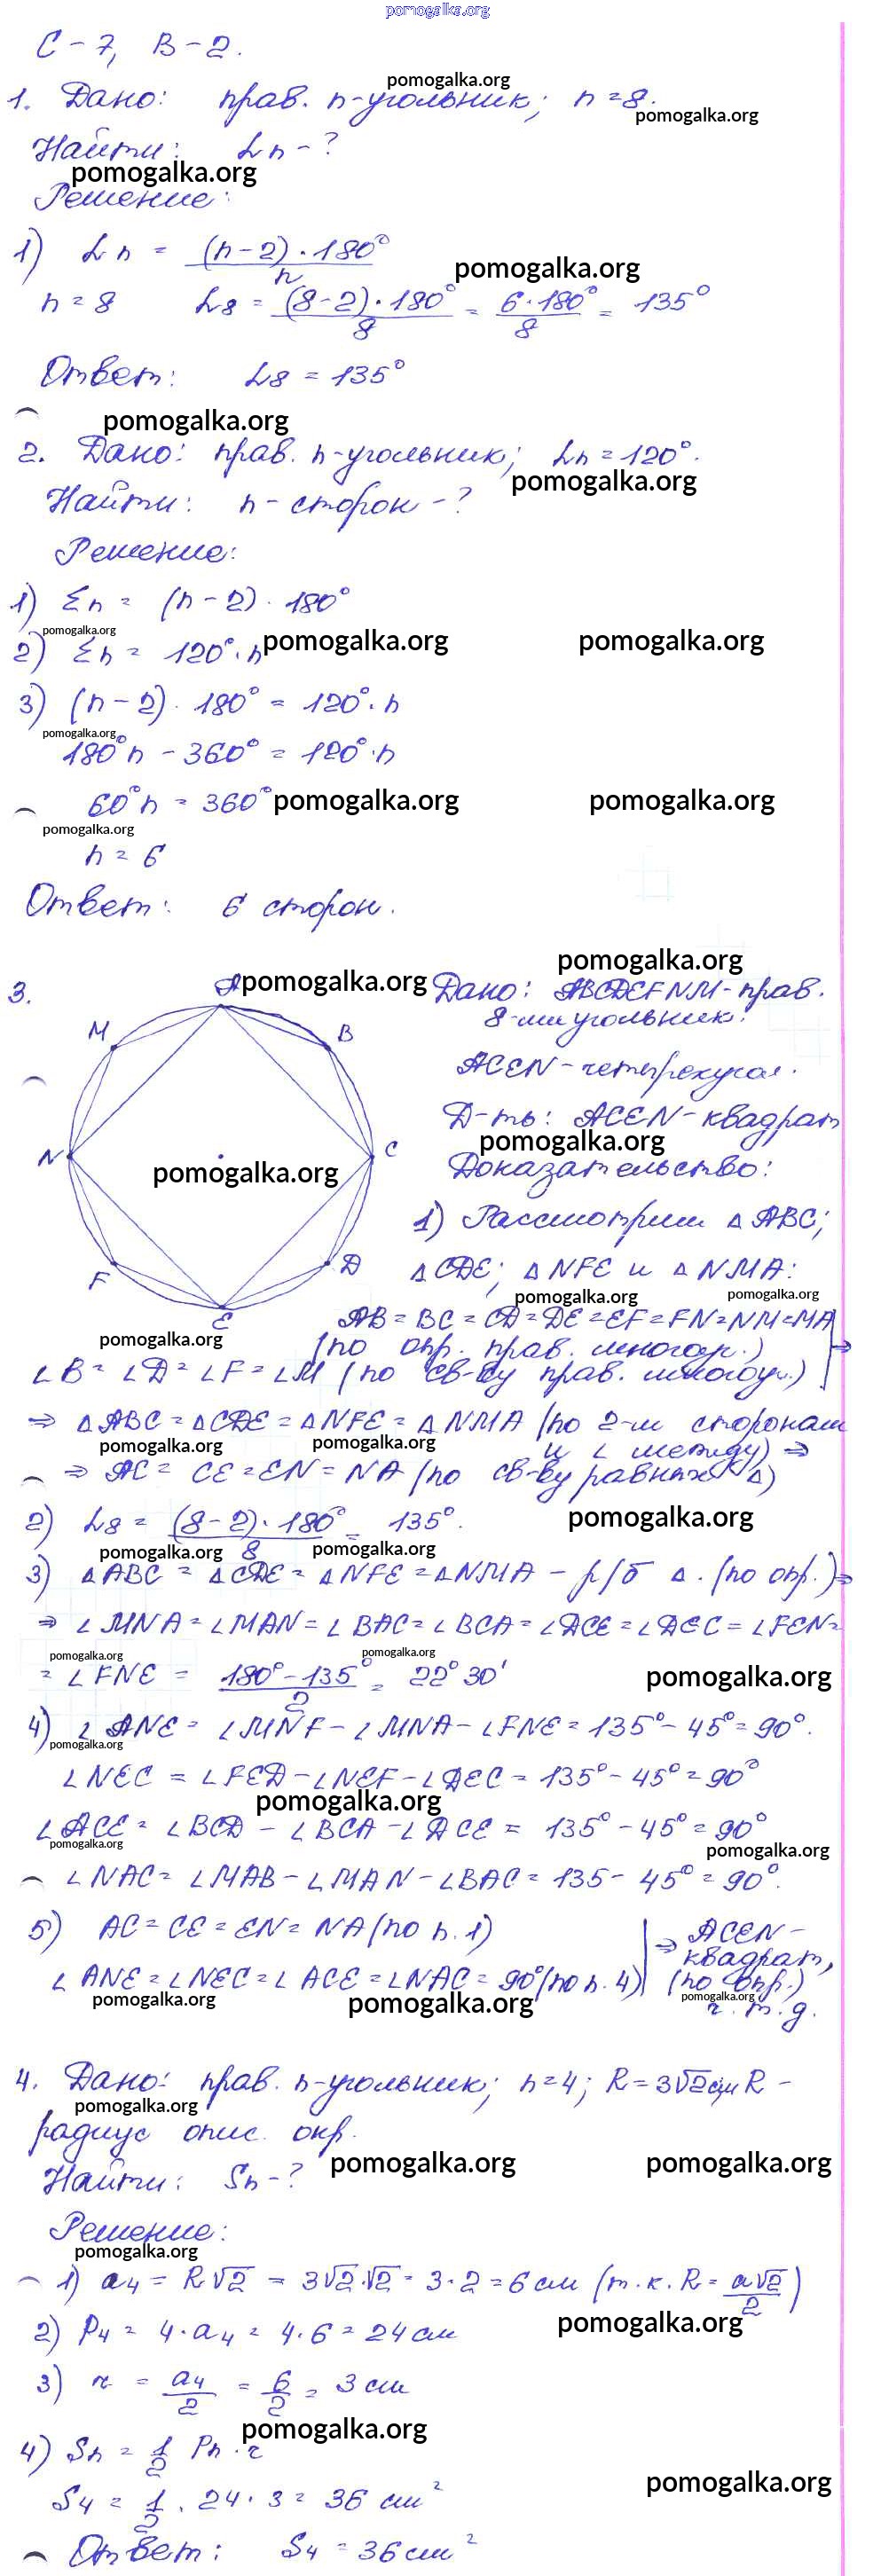 pomogalka.org
С-7, В-2.
pomogalka.org
1. Дано: прав. n-угольник; n=8.
pomogalka.org
Найти: αn-?
pomogalka.org
Решение:
1) αn = (n-2)·180°/n
pomogalka.org
n=8 α8 = (8-2)·180°/8 = 6·180°/8 = 135°
Ответ: α8 = 135°
pomogalka.org
2. Дано: прав. n-угольник; αn=120°.
pomogalka.org
Найти: n-сторон-?
Решение:
1) Σn = (n-2)·180°
pomogalka.org pomogalka.org pomogalka.org
2) Σn = 120°·n
3) (n-2)·180° = 120°·n
pomogalka.org
180°n - 360° = 120°·n
60°n = 360°
pomogalka.org pomogalka.org
pomogalka.org
n = 6
Ответ: 6 сторон.
pomogalka.org
3. A pomogalka.org Дано: ABCDEFNM-прав.
8-миугольник.
M B
ACEN-четырехугол.
Д-ть: ACEN-квадрат
pomogalka.org
N C
pomogalka.org
Доказательство:
1) Рассмотрим Δ ABC;
F D
Δ CDE; Δ NFE и Δ NMA:
pomogalka.org pomogalka.org
E
AB = BC = CD = DE = EF = FN = NM = MA
pomogalka.org
(по опр. прав. многоуг.) ⇒
∠B = ∠D = ∠F = ∠M (по св-ву прав. многоуг.)
⇒ Δ ABC = Δ CDE = Δ NFE = Δ NMA (по 2-м сторонам
pomogalka.org pomogalka.org
и ∠ между) ⇒
⇒ AC = CE = EN = NA (по св-ву равных Δ)
2) α8 = (8-2)·180°/8 = 135°.
pomogalka.org
pomogalka.org pomogalka.org
3) Δ ABC = Δ CDE = Δ NFE = Δ NMA - р/б Δ. (по опр.) ⇒
⇒ ∠MNA = ∠MAN = ∠BAC = ∠BCA = ∠DCE = ∠DEC = ∠FEN =
pomogalka.org pomogalka.org
= ∠FNE = 180°-135°/2 = 22°30'
pomogalka.org
4) ∠ANE = ∠MNF - ∠MNA - ∠FNE = 135° - 45° = 90°.
pomogalka.org
∠NEC = ∠FED - ∠NEF - ∠DEC = 135° - 45° = 90°
pomogalka.org
∠ACE = ∠BCD - ∠BCA - ∠DCE = 135° - 45° = 90°
pomogalka.org pomogalka.org
∠NAC = ∠MAB - ∠MAN - ∠BAC = 135 - 45° = 90°.
5) AC = CE = EN = NA (по п. 1) ⇒ ACEN -
квадрат,
∠ANE = ∠NEC = ∠ACE = ∠NAC = 90° (по п. 4) (по опр.)
pomogalka.org pomogalka.org pomogalka.org
ч. т. д.
4. Дано: прав. n-угольник; n=4; R=3√2см R -
pomogalka.org
радиус опис. окр.
Найти: Sn-?
pomogalka.org pomogalka.org
Решение:
pomogalka.org
1) a4 = R√2 = 3√2·√2 = 3·2 = 6 см (т.к. R = a√2/2)
pomogalka.org
2) P4 = 4·a4 = 4·6 = 24 см
3) r = a4/2 = 6/2 = 3 см
pomogalka.org
4) Sn = 1/2 Pn·r
pomogalka.org
S4 = 1/2 · 24·3 = 36 см²
Ответ: S4 = 36 см²